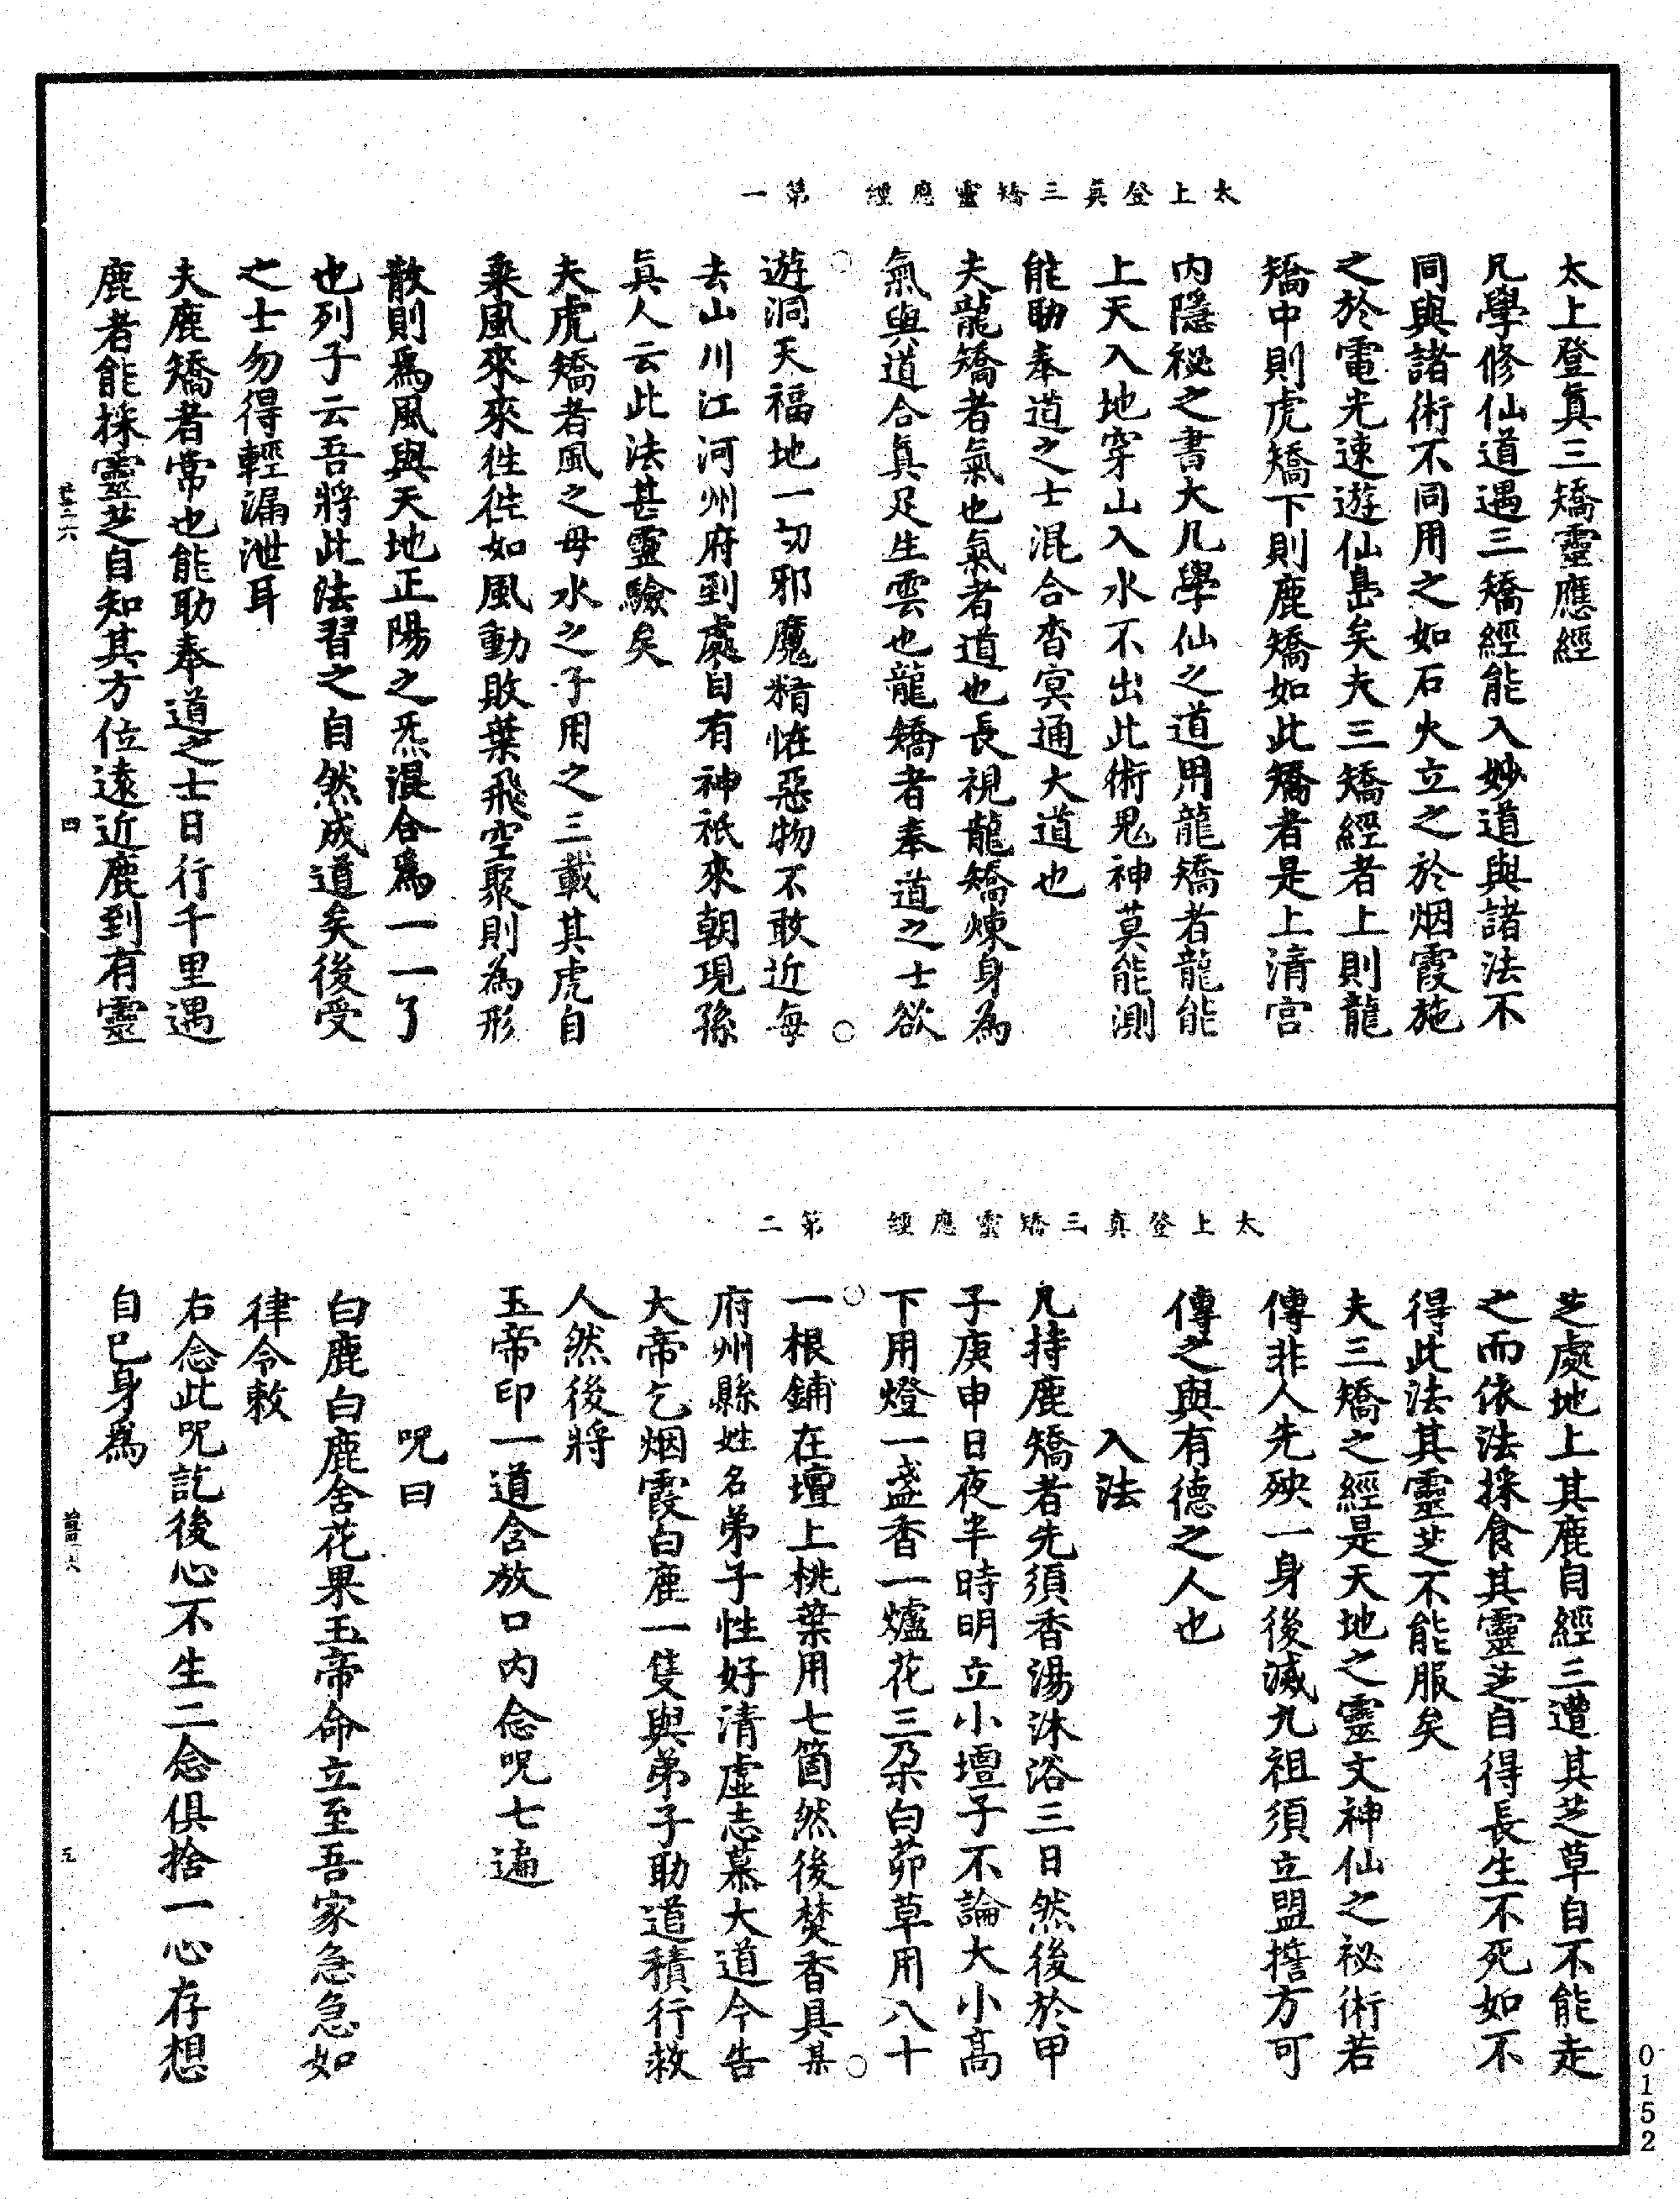 太上登眞三矯靈應經　第一
太上登眞三矯靈應經
凡學修仙道遇三矯經能入妙道與諸法不
同與諸術不同用之如石火立之於烟霞施
之於電光速遊仙島矣夫三矯經者上則龍
矯中則虎矯下則鹿矯如此矯者是上清宫
内隱祕之書大凡學仙之道用龍矯者龍能
上天入地穿山入水不出此術鬼神莫能測
能助奉道之士混合杳冥通大道也
夫龍矯者氣也氣者道也長視龍矯煉身為
氣與道合眞足生雲也龍矯者奉道之士欲
遊洞天福地一切邪魔精怪惡物不敢近每
去山川江河州府到處自有神祇來朝現孫
眞人云此法甚靈驗矣
夫虎矯者風之母水之子用之三載其虎自
乘風來來徃徃如風動敗葉飛空聚則為形
散則爲風與天地正陽之炁混合爲一一了
也列子云吾將此法習之自然成道矣後受
之士勿得輕漏泄耳
夫鹿矯者常也能助奉道之士日行千里遇
鹿者能採靈芝自知其方位遠近鹿到有靈
四
太上登真三矯靈應經　第二
芝處地上其鹿自經三遭其芝草自不能走
之而依法採食其靈芝自得長生不死如不
得此法其靈芝不能服矣
夫三矯之經是天地之靈文神仙之祕術若
傳非人先殃一身後滅九祖須立盟誓方可
傳之與有德之人也
入法
凡持鹿矯者先須香湯沐浴三日然後於甲
子庚申日夜半時明立小壇子不論大小高
下用燈一盞香一爐花三朶白茆草用八十
一根鋪在壇上桃葉用七箇然後焚香具某
府州縣姓名弟子性好清虚志慕大道今告
大帝乞烟霞白鹿一隻與弟子助道積行救
人然後將
玉帝印一道含放口内念呪七遍
呪曰
白鹿白鹿舍花果玉帝命立至吾家急急如
律令敕
右念此呪訖後心不生二念俱捨一心存想
自已身爲
0152